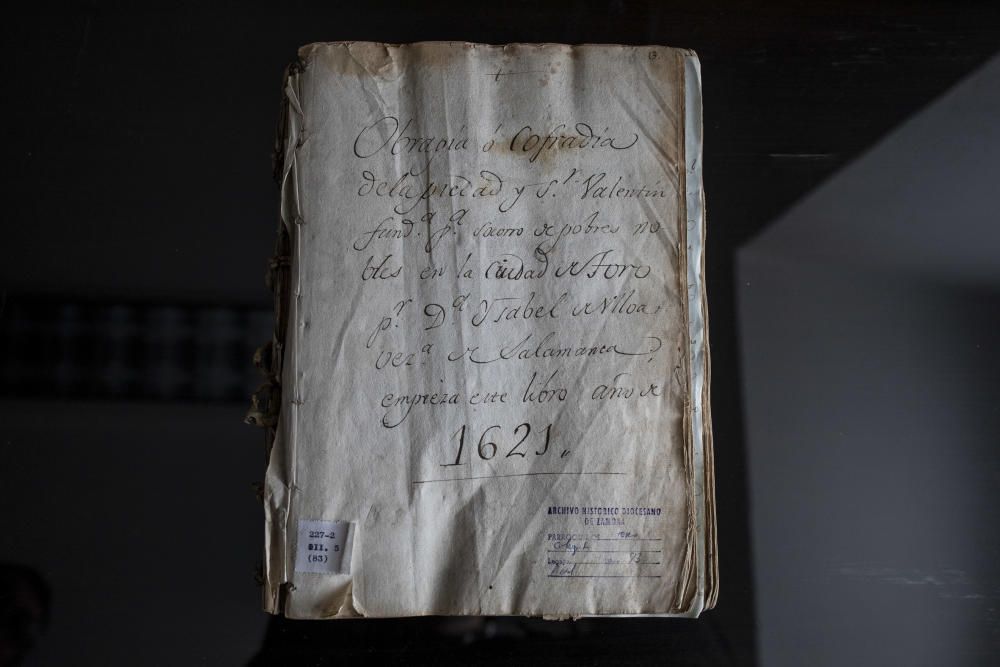 13.
Obrapia ó Cofradía
de la piedad y S.ⁿ Valentin
fund.ª pª. socorro de pobres no
bles en la Ciudad de Toro
pʳ. D.ª Ysabel de Vlloa,
vez.ª de Salamanca,
empieza este libro año de
1621.
ARCHIVO HISTORICO DIOCESANO
DE ZAMORA
PARROQUIA DE Toro
Legajo Libro 83
227-2
(83)